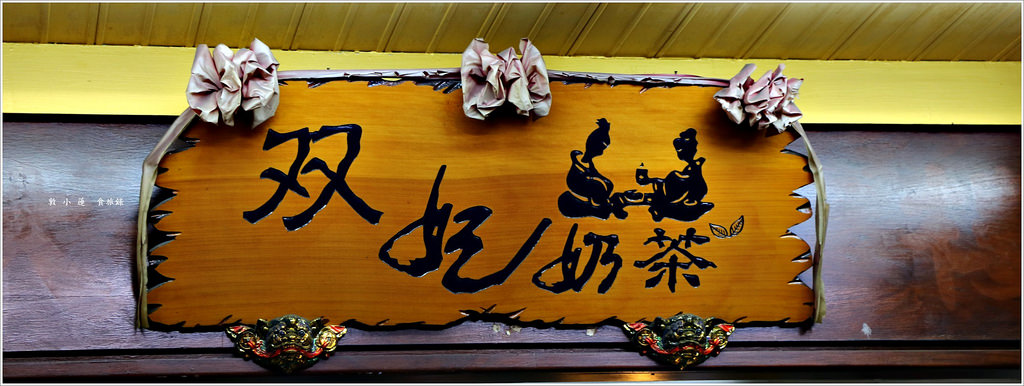 双妃奶茶
敦小蓮 食旅錄